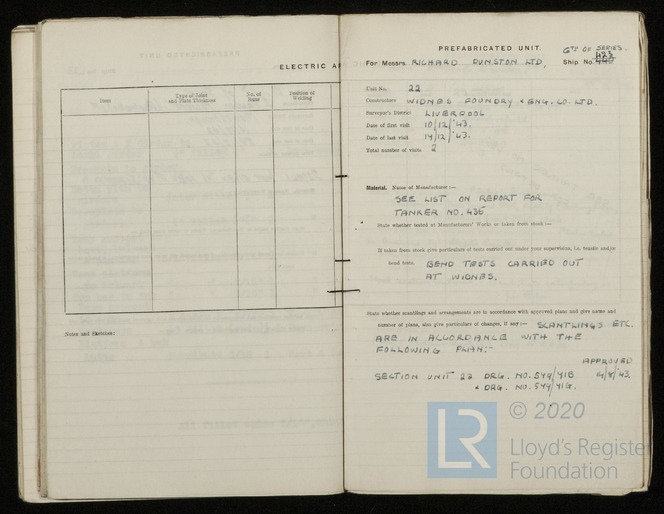 ELECTRIC A
Item
Type of Joint
and Plate Thickness
No. of
Runs
Position of
Welding
Notes and Sketches:
PREFABRICATED UNIT.
6TH OF SERIES.
For Messrs. RICHARD DUNSTON LTD, Ship No. 423
Unit No. 22
Constructors WIDNES FOUNDRY & ENG. CO. LTD.
Surveyor's District LIVERPOOL
Date of first visit 10/12/'43.
Date of last visit 14/12/'43.
Total number of visits 2
Material. Name of Manufacturer:—
SEE LIST ON REPORT FOR
TANKER NO. 435
State whether tested at Manufacturers' Works or taken from stock:—
If taken from stock give particulars of tests carried out under your supervision, i.e. tensile and/or
bend tests. BEND TESTS CARRIED OUT
AT WIDNES.
State whether scantlings and arrangements are in accordance with approved plans and give names and
number of plans, also give particulars of changes, if any:— SCANTLINGS ETC.
ARE IN ACCORDANCE WITH THE
FOLLOWING PLAN:-
APPROVED
SECTION UNIT 22 DRG. NO. 549/41B 14/8/'43.
& DRG. NO. 549/41G.
LR
© 2020
Lloyd's Register
Foundation